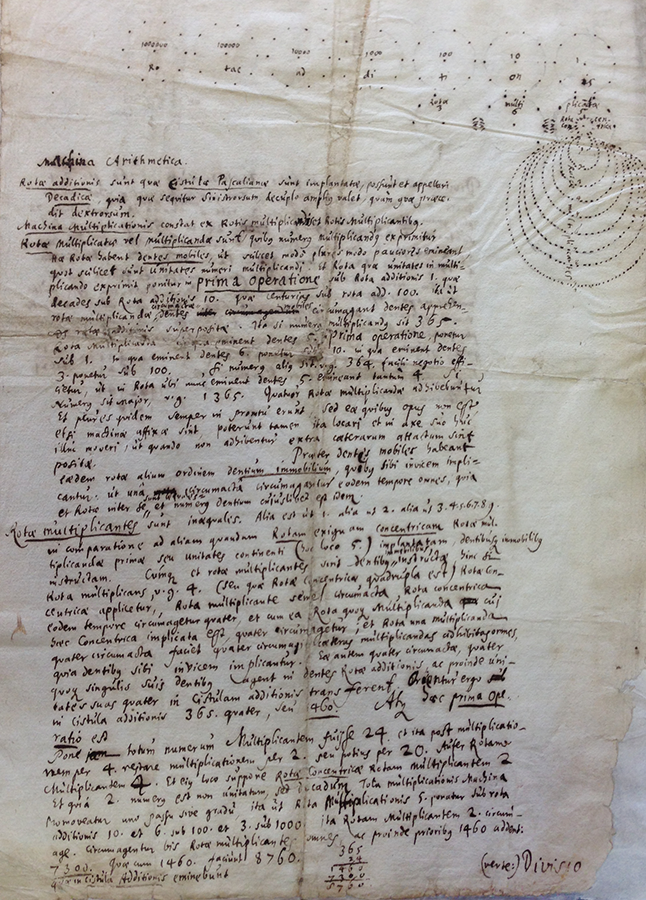 1000000 100000 10000 1000 100 10 1
Ro tae ad di ti on
Rota multi plicata
3 6 5
Machina Arithmetica.
Rotae additionis sunt quae Cistulae Pascalianae sunt implantatae, possunt et appellari
Decadicae quia quae sequitur sinistrorsum decuplo amplius valet, quam quae praece-
dit dextrorsum.
Machina Multiplicationis constat ex Rotis multiplicandis et Rotis Multiplicantibus.
Rotae Multiplicatae vel multiplicandae sunt, quibus numerus multiplicandus exprimitur
Hae Rotae habent dentes mobiles, ut scilicet modo plures modo pauciores emineant
quot scilicet sunt unitates numeri multiplicandi. Et Rota quae unitates in multi-
plicando exprimit ponitur in prima operatione sub Rota additionis 1. quae
decades sub Rota additionis 10. quae centurias sub rota add. 100. ut
rotae multiplicandae dentes circumacta mobiles circumagant dentes
rotae additionis superpositae. Ita si numerus multiplicandus sit 365.
Rota Multiplicanda in qua eminent dentes 5. Prima operatione, ponetur
sub 1. in qua eminent dentes 6. ponetur sub 10. in qua eminent dentes
3. ponetur sub 100. Si numerus alius sit, v.g. 364. facili negotio effi-
cietur, ut in Rota ubi nunc eminent dentes 5. emineant tantum 4. Si
Numerus sit major, v.g. 1365. Quatuor Rotae multiplicandae adhibebuntur
Et plures quidem semper in promtu erunt, sed eae quibus opus non est
etsi machinae affixae sint poterunt tamen ita locari et in axe suo huc
illuc moveri, ut quando non adhibentur extra caeterarum attactum sint
positae. Praeter dentes mobiles habeant
eaedem rotae alium ordinem dentium immobilium, quibus sibi invicem impli-
cantur: ut una circumacta circumagantur eodem tempore omnes, quia
et Rotae inter se, et numerus dentium cujuslibet est idem.
Rotae multiplicantes sunt inaequales. Alia est ut 1. alia ut 2. alia ut 3.4.5.6.7.8.9.
in comparatione ad aliam quandam Rotam exiguam concentricam Rotae mul-
tiplicandae primae seu unitates continenti (hoc loco 5.) implantatam dentibus immobilibus
instructam. Cumque et rotae multiplicantes sint dentibus instructae hinc si
Rota multiplicans, v.g. 4. (seu quae Rotae concentricae, quadrupla est) Rotae con-
centricae applicetur, Rota multiplicante semel circumacta Rota concentrica
eodem tempore circumagetur quater, et cum ea Rota quoque Multiplicanda cui
haec Concentrica implicata est, quater circumagetur, et Rota una multiplicanda
quater circumacta faciet quater circumagi caeteras multiplicandas adhibitas omnes,
quia dentibus sibi invicem implicantur. Ea autem quater circumacta, quater
quoque singulis suis dentibus agent in dentes Rotae additionis, ac proinde uni-
tates suas quater in Cistulam additionis transferent. Orientur ergo
in cistula additionis 365. quater, seu 1460. Atque haec prima Ope-
ratio est.
Pone totum numerum Multiplicantem fuisse 24. et ita post multiplicatio-
nem per 4. restare multiplicationem per 2. seu potius per 20. Aufer Rotam
Multiplicantem 4. Et ejus loco suppone Rotae Concentricae Rotam multiplicantem 2
Et quia 2. numerus est non unitatum, sed decadum Tota multiplicationis Machina
promoveatur uno passu sive gradu ita ut Rota Multiplicationis 5. ponatur sub rota
additionis 10. et 6. sub 100. et 3. sub 1000 ita Rotam Multiplicantem 2. circum-
age. Circumagentur bis Rotae multiplicandae omnes, ac proinde prioribus 1460 addent:
7300. Quae cum 1460. faciunt 8760.
quae in Cistula Additionis eminebunt
365
24
1460
7300
8760
(verte:) Divisio